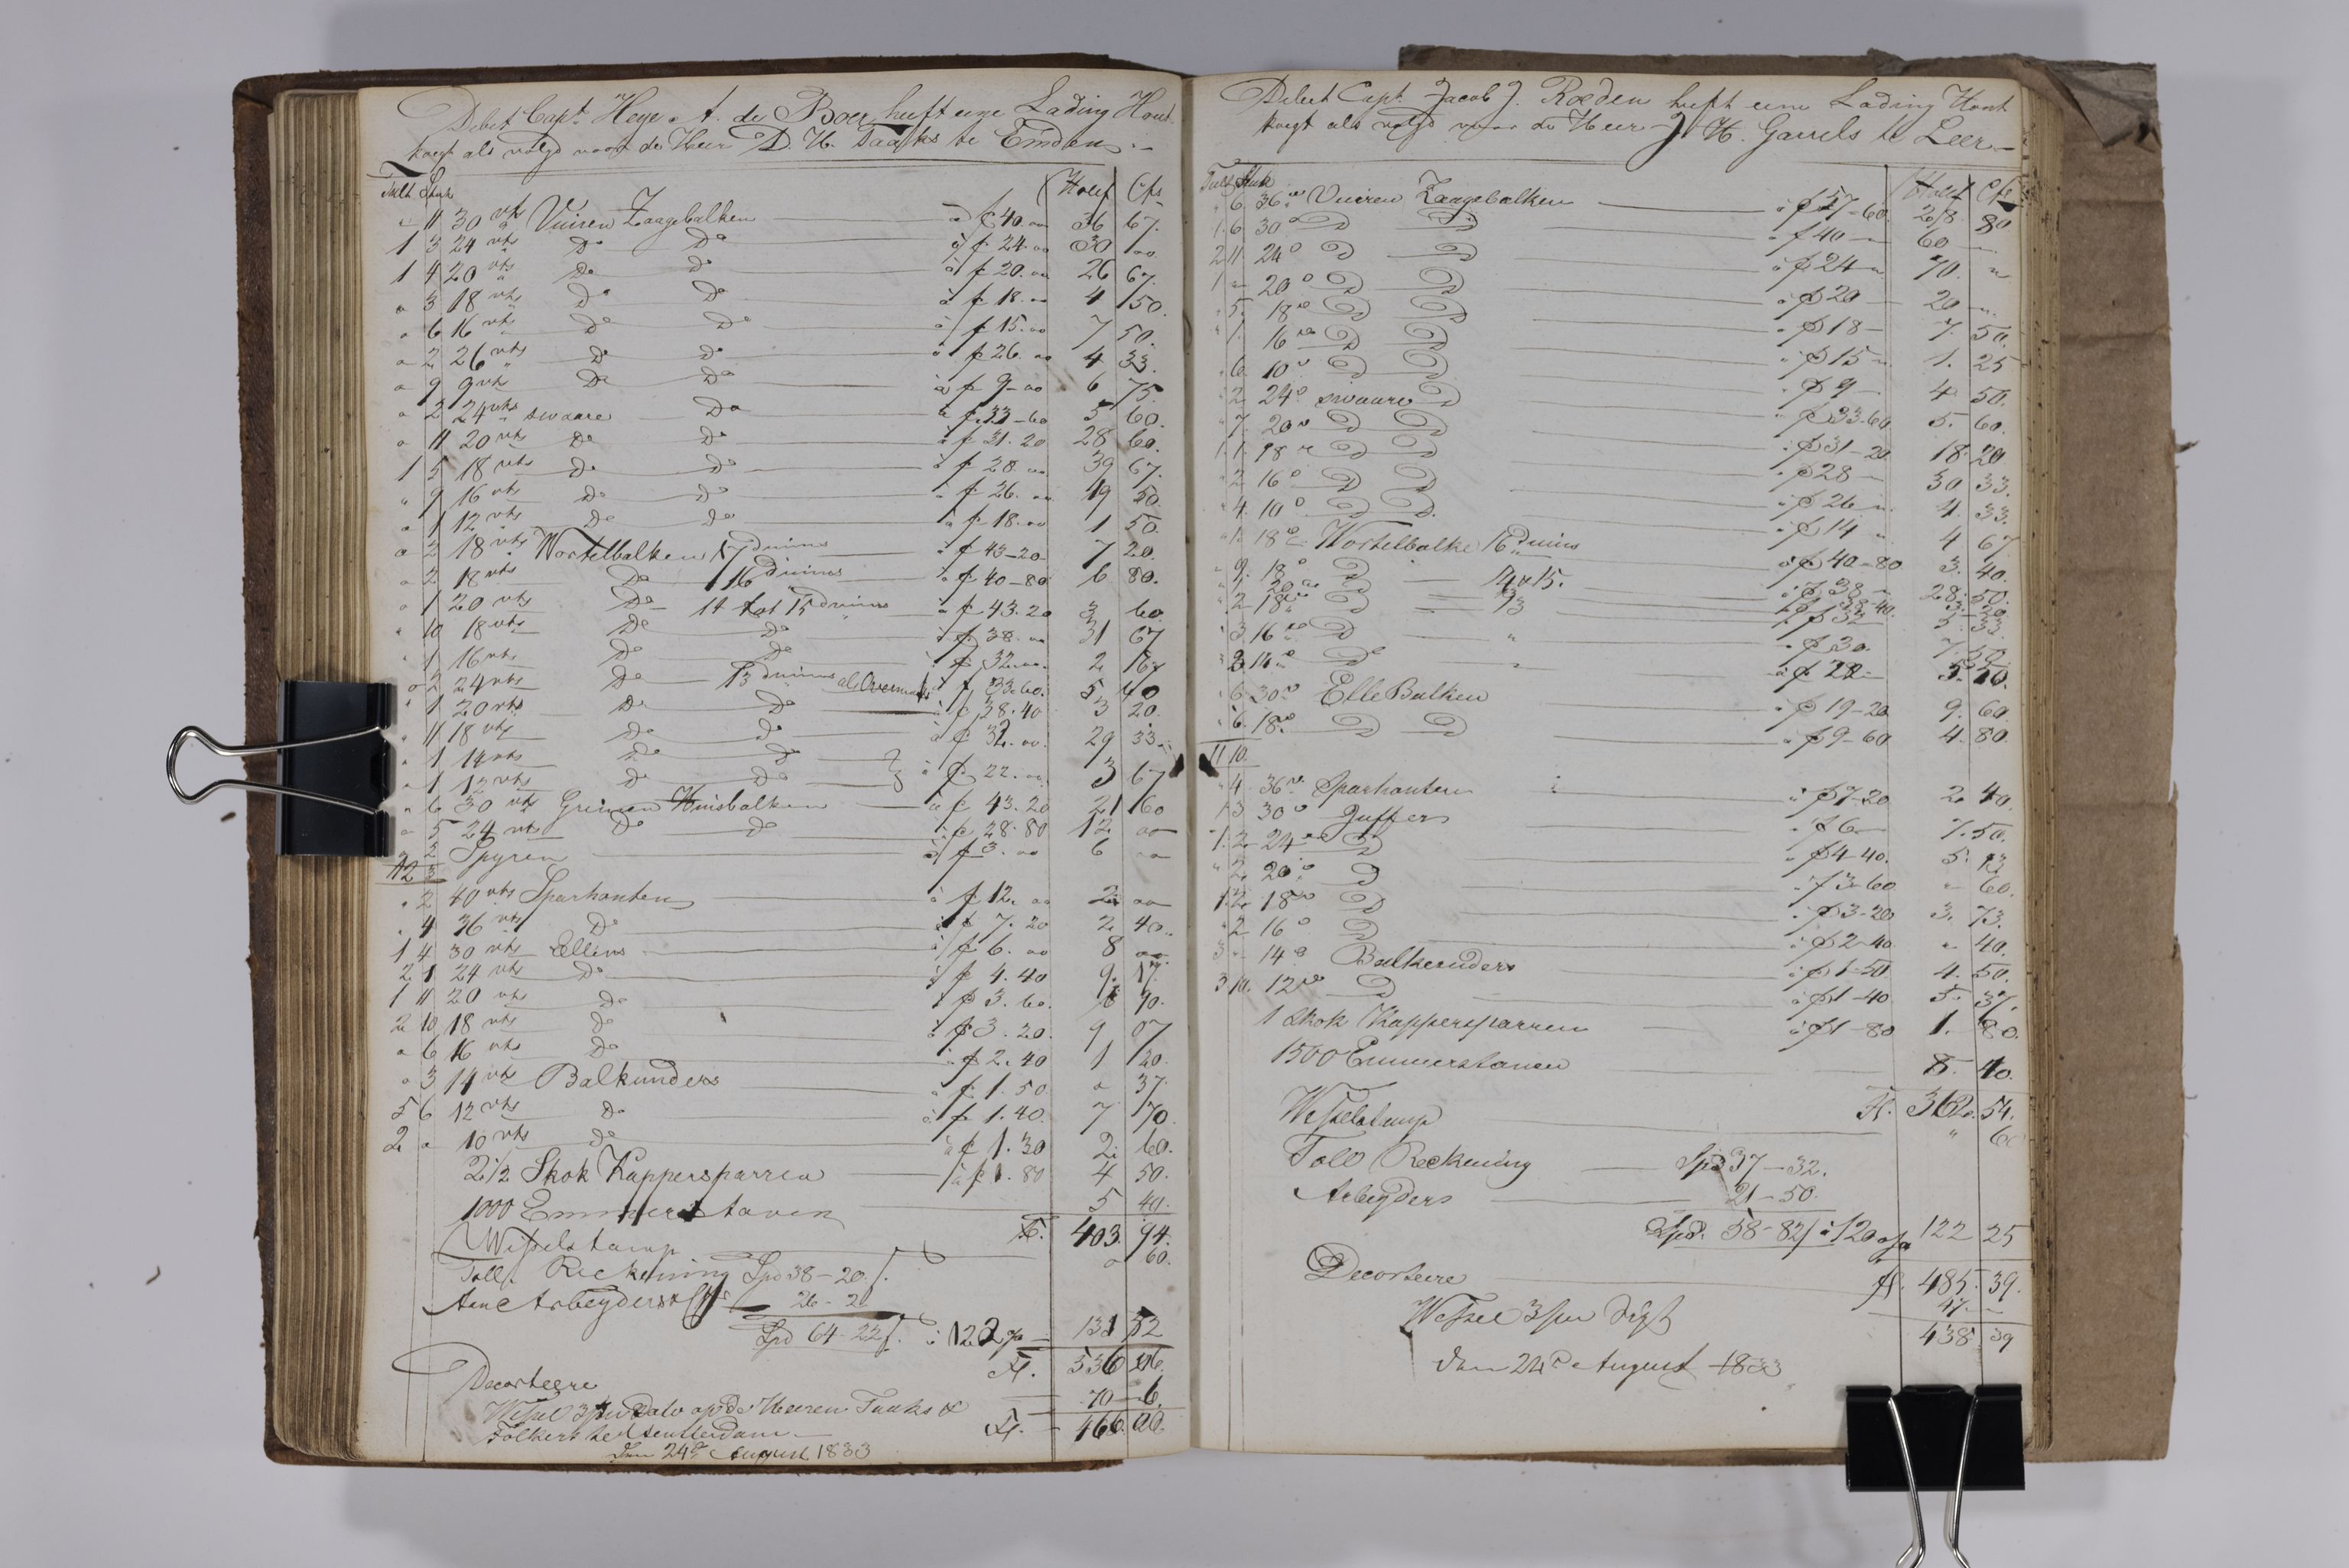 Debet Capt. Heye A. de Boer heeft eene Lading Hout
koopt als volgd voor de Heer D. H. Taaks te Emden
Tult Stuk Holl. Cts
" 11 30 vts Vuiren Zaagebalken à f 40.00 36 67.
1 3 24 vts Do Do à f 24.00 30 00
1 4 20 vts Do Do à f 20.00 26 67.
" 3 18 vts Do Do à f 18.00 4 50.
" 6 16 vts Do Do à f 15.00 7 50.
" 2 26 vts Do Do à f 26.00 4 33.
" 9 9 vts Do Do à f 9.00 6 75.
" 2 24 vts swaare Do à f 33-60 5 60.
" 11 20 vts Do Do à f 31.20 28 60.
1 5 18 vts Do Do à f 28.00 39 67.
" 9 16 vts Do Do à f 26.00 19 50.
" 1 12 vts Do Do à f 18.00 1 50.
" 2 18 vts Wortelbalken 17 duims à f 43-20 7 20.
" 2 18 vts Do 16 duims à f 40-80 6 80.
" 1 20 vts Do 14 tot 15 duims à f 43.20 3 60
" 10 18 vts Do Do à f 38.00 31 67
" 1 16 vts Do Do à f 32.00 2 67
" 2 24 vts Do 13 duims à f 33.60. 5 40
" 1 20 vts Do Do à f 38.40 3 20.
" 11 18 vts Do Do à f 32.00. 29 33.
" 1 14 vts Do Do
" 1 12 vts Do Do à f 22.00. 3 67
" 6 30 vts Greinen Huisbalken à f 43.20 21 60
" 5 24 vts Do Do à f 28.80 12 00
" 2 Spyren à f 3.00 6 00
12 3
" 2 40 vts Sparhouten à f 12.00 2 00
" 4 36 vts Do à f 7.20 2 40.
1 4 30 vts Ellens à f 6.00 8 00.
2 1 24 vts Do à f 4.40 9. 17.
1 11 20 vts Do à f 3.60. 6 90.
2 10 18 vts Do à f 3.20. 9 07
" 6 16 vts Do à f 2.40 1 20.
" 3 14 vts Balkunders à f 1.50. " 37.
5 6 12 vts Do à f 1.40. 7 70
2 " 10 vts Do à f 1.30 2. 60.
2 1/2 Skok Kappersparren à f 1.80 4 50.
1000 Emmerstaven 5 40.
Fl. 403. 94.
Wisselstamp " 60.
Toll Rickening Spd 38-20
Arbeyders 26-2
Spd 64-22 à 122 131 52
Fl. 536 06.
Decorteere 70-6.
Wissel 3/m dato op de Heeren Taaks &
Folkers te Amsterdam Fl. 466. 00.
Den 24de August 1833
Debet Capt. Jacob J. Roeden heeft eene Lading Hout
koopt als volgd voor de Heer J. H. Garrels te Leer
Tult Stuk Holl. Cts
" 6 36 vts Vuiren Zaagebalken à f 57-60 28 80
1 6 30 Do Do à f 40 60
2 11 24 Do Do à f 24 70.
1 " 20 Do Do à f 20 20
" 5. 18 Do Do à f 18 7. 50.
" 1. 16 Do Do à f 15 1. 25
" 6. 10 Do Do à f 9 4 50.
" 2. 24 swaare Do à f 33-60 5. 60.
" 7. 20 Do Do à f 31-20 18. 20
1 1. 18 Do Do à f 28 30 33.
" 2 16 Do Do à f 26 4. 33.
" 4. 10 Do Do à f 14 4 67
" 1. 18 Wortelbalke 16 duims à f 40-80 3. 40.
" 9. 18 Do 14 a 15. à f 38 28. 50.
" 1. 20 Do à f 38-40. 3-20.
" 2 18 Do 13 à f 32 5. 33
" 3 16 Do " à f 30. 7. 50
14 Do " à f 22.
" 6 30 Elle Balken à f 19-20 9. 60
" 6. 18 Do Do à f 9-60 4. 80.
11 10.
" 4 36 Sparhouten à f 7-20 2. 40.
1 3 30 Juffers à f 6 7. 50.
1 2 24 Do à f 4-40. 5. 13
" 2 20 Do à f 3-60 " 60.
1 2 18 Do à f 3-20 3. 73.
" 2 16 Do à f 2-40 " 40.
3 " 14 Balkerunders à f 1-50 4. 50.
3 10. 12 Do à f 1-40 5. 37.
1 Skok Kappersparren à f 1-80 1. 80.
1500 Emmerstaven 8. 10.
Fl. 362. 54.
Wisselstamp " 60
Toll Reckening Spd 37-32.
Arbeyders 21-50.
Spd. 58-82 à 120 122 25
Fl. 485. 39.
Decorteere 47
Wissel 3/m Sigt 438 39
Den 24de August 1833